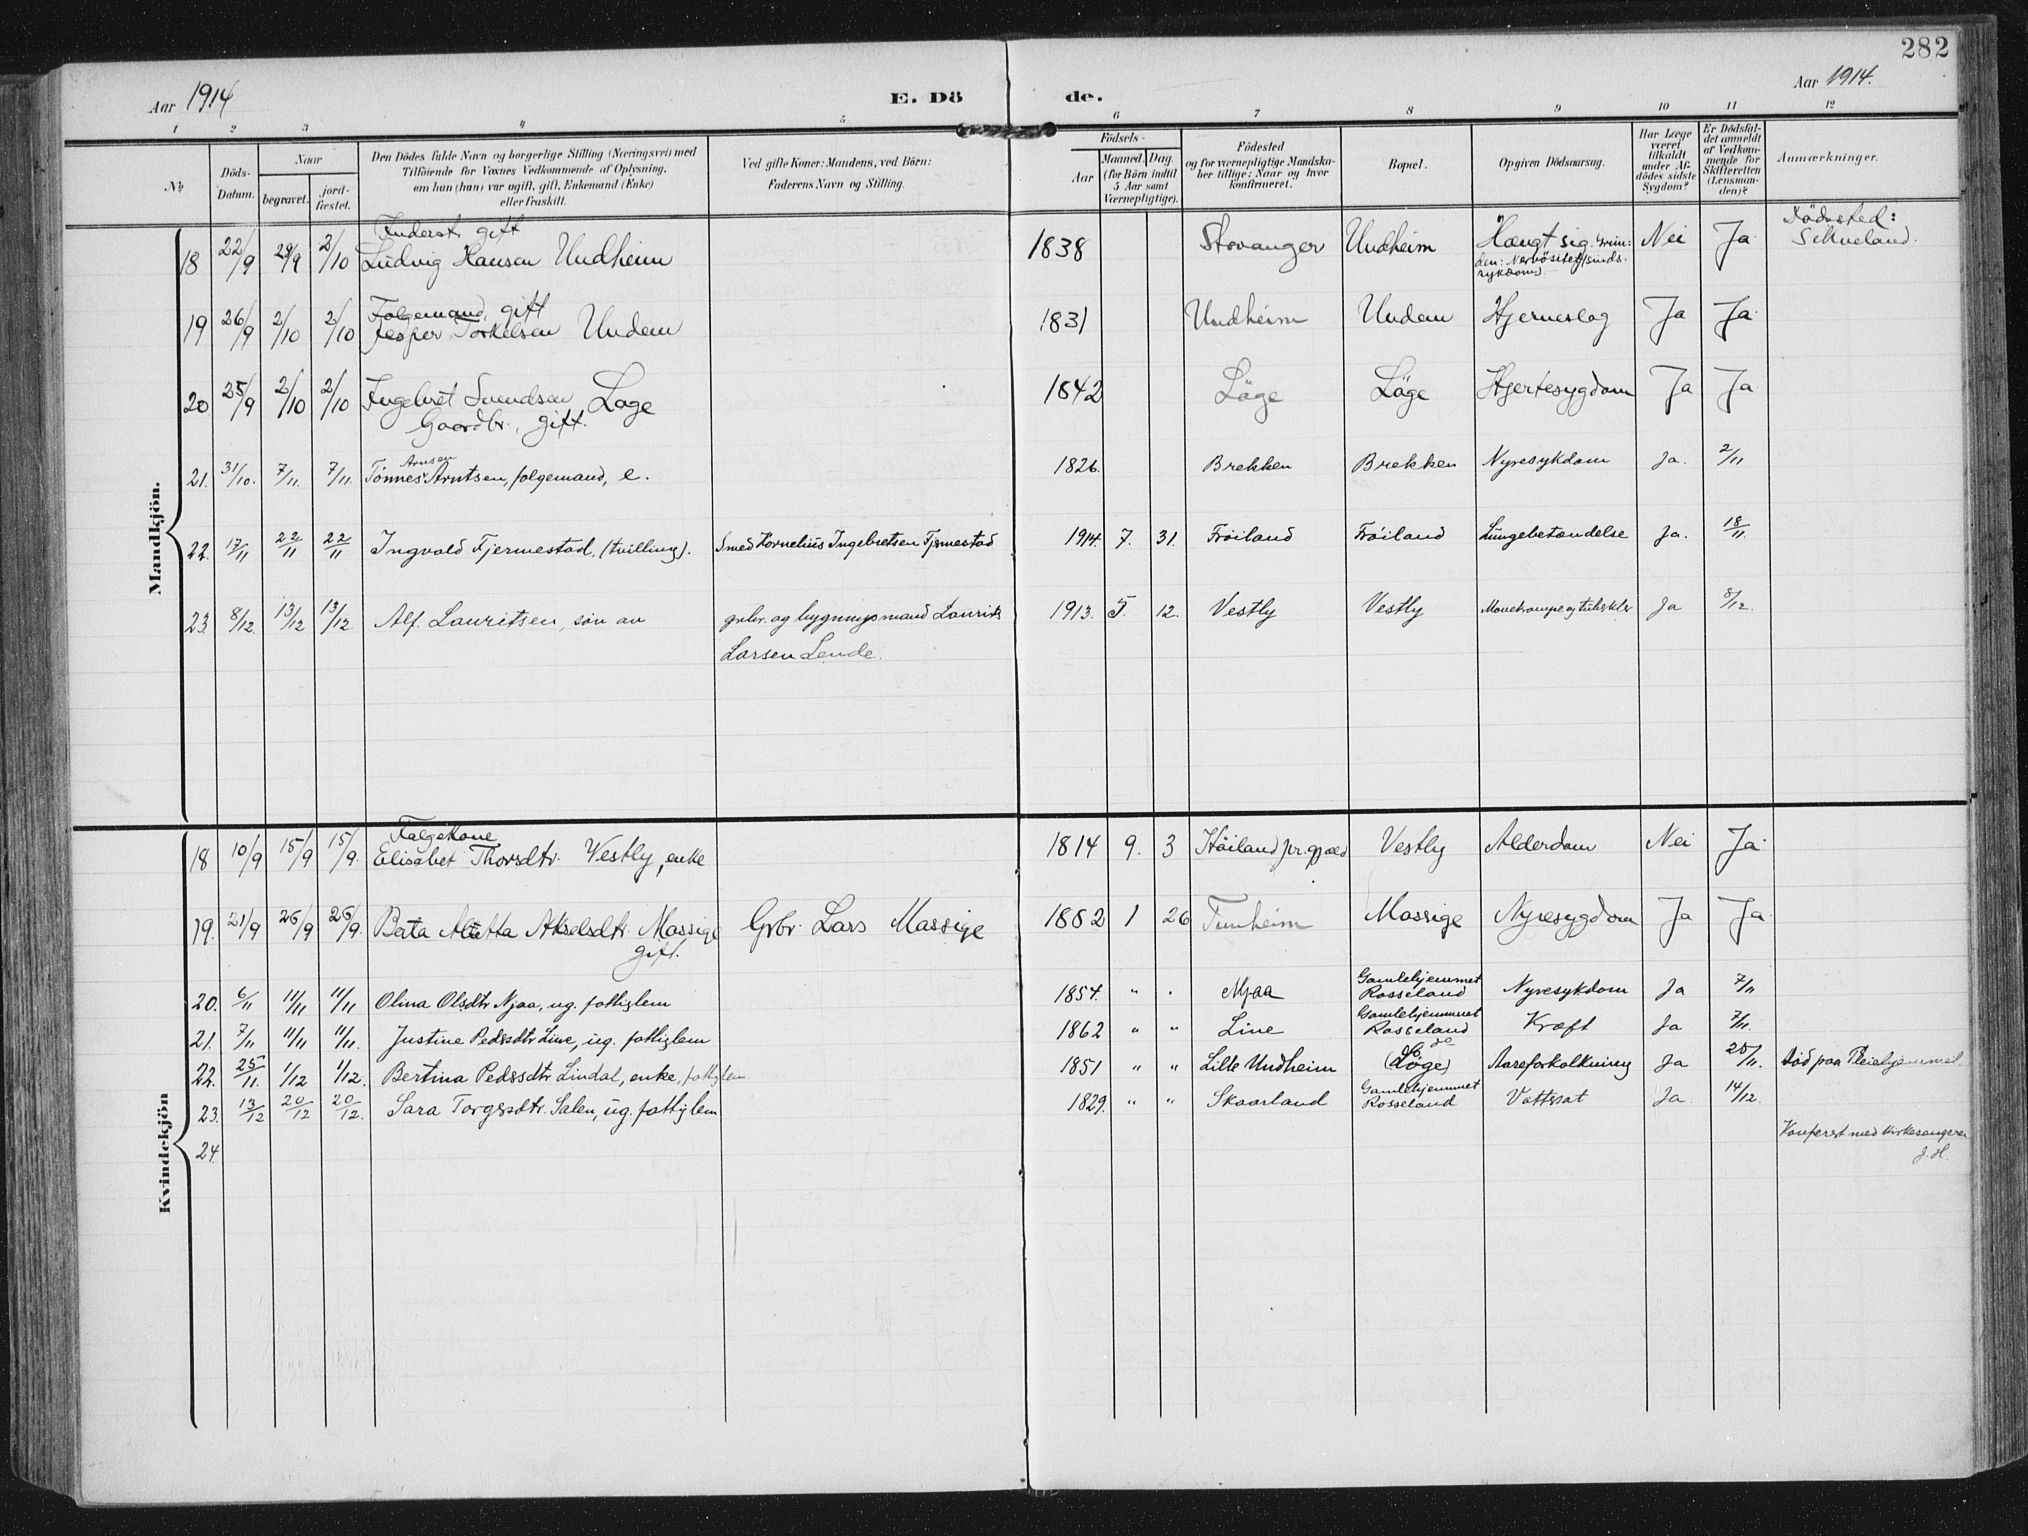 282
Aar 1914
E. Dö de.
Aar 1914.
1 2 3 4 5 6 7 8 9 10 11 12
No
Döds-Datum.
Naar
begravet.
jord-fæstet.
Den Dödes fulde Navn og borgerlige Stilling (Næringsvei) med
Tilföiende for Voxnes Vedkommende af Oplysning,
om han (hun) var ugift, gift, Enkemand (Enke)
eller fraskilt.
Ved gifte Koner: Mandens, ved Börn:
Faderens Navn og Stilling.
Födsels-
Aar
Maaned. Dag.
(for Börn indtil
5 Aar samt
Værnepligtige).
Födested
og for værnepligtige Mandska-
ber tillige: Naar og hvor
konfirmeret.
Bopæl.
Opgiven Dödsaarsag.
Har Læge
været
tilkaldt
under Af-
dödes sidste
Sygdom?
Er Dödsfal-
det anmeldt
af Vedkom-
mende for
Skifteretten
(Lensman-
den)?
Anmærkninger.
Mandkjön.
18 22/9 29/9 2/10 Inderst, gift
Ludvig Hansen Undheim 1838 Stavanger Undheim Hængt sig. Nei Ja Dödssted:
Sikveland.
19 26/9 2/10 2/10 Folgemand, gift
Jesper Torkelsen Undem 1831 Undheim Undem Hjerneslag Ja Ja
20 25/9 2/10 2/10 Ingebret Svendsen Lage
Gaardbr., gift. 1842 Låge Låge Hjertesygdom Ja Ja
21. 31/10. 7/11. 7/11. Tönnes Arntsen, folgemand, e. 1826. Brekken Brekken Nyresykdom Ja. 2/11
22. 17/11 22/11 22/11 Ingvald Fjermestad, (tvilling). Smed Kornelius Ingebretsen Fjermestad 1914. 7. 31. Fröiland Fröiland Lungebetændelse Ja. 18/11.
23. 8/12. 13/12 13/12. Alf Lauritsen, sön av gbr. og bygningsmand Laurits
Larsen Lende. 1913. 5. 12. Vestly Vestly Ja 8/12.
Kvindekjön
18 10/9 15/9 15/9. Folgekone
Elisabet Thorsdtr. Vestly, enke 1814 9. 3 Höiland pr.gjæld Vestly Alderdom Nei Ja
19. 21/9 26/9 26/9. Bata Akselsdtr. Massige
gift. Grbr. Lars Massige 1882 1 26 Tunheim Massige Nyresygdom Ja Ja
20. 6/11 11/11 11/11 Olina Olsdtr Njaa, ug. fattiglem 1854. " . Njaa Gamlehjemmet
Rosseland Nyresykdom Ja 7/11
21. 7/11 11/11 11/11. Justine Pedersdtr Line, ug. fattiglem 1862 " " Line Gamlehjemmet
Rosseland Kræft Ja 7/11.
22. 25/11. 1/12 1/12. Bertina Pedersdtr Lindal, enke, fattiglem 1851 " " Lille Undheim do
(Löge) Aareforkalkning Ja 25/11. Död paa Pleiehjemmet.
23. 13/12 20/12 20/12. Sara Torgersdtr. Salen, ug. fattiglem 1829. " " Skaarland Gamlehjemmet
Rosseland Vattsot Ja. 14/12.
24. Konferert med kirkesangeren
J. H.